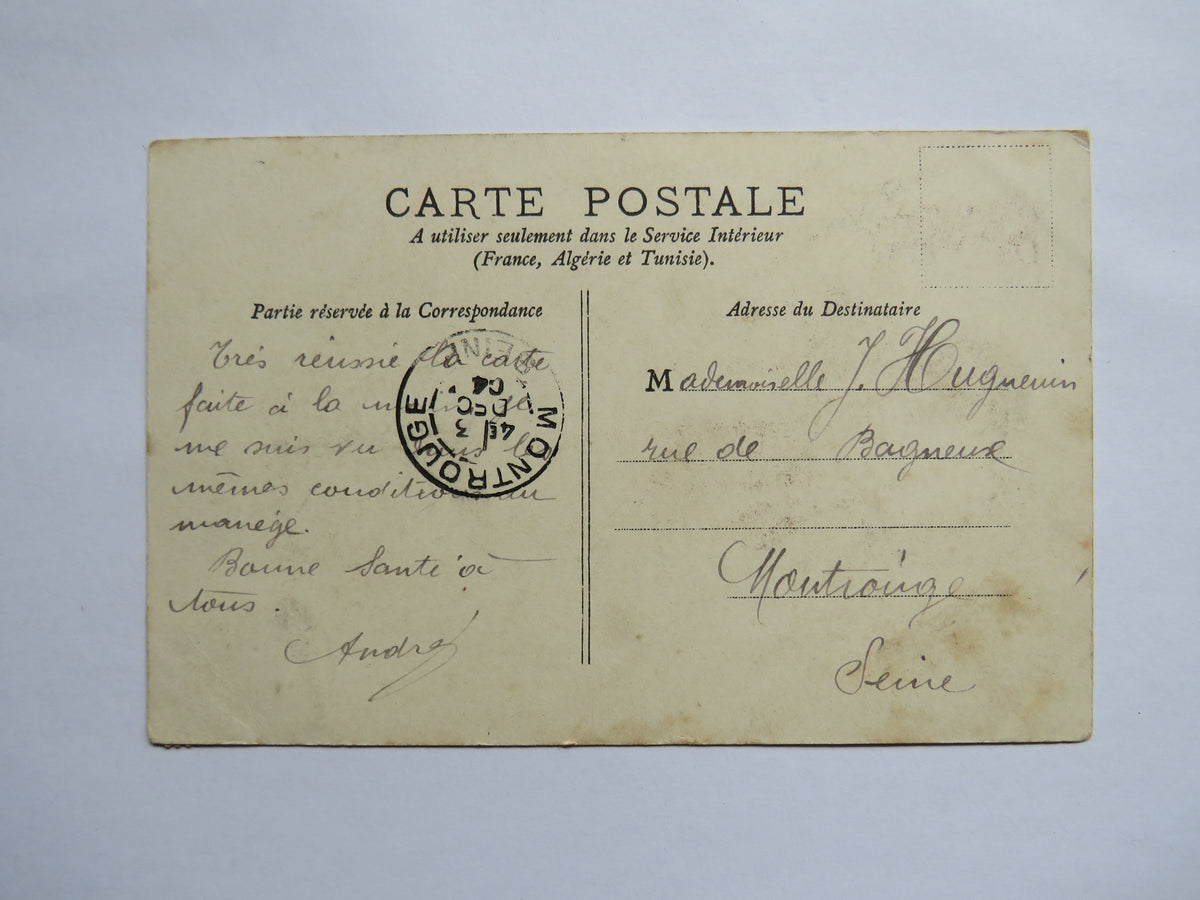 CARTE POSTALE
A utiliser seulement dans le Service Intérieur
(France, Algérie et Tunisie).
Partie réservée à la Correspondance
Très réussie la carte
faite à la
me suis vu dans les
mêmes conditions au
manège.
Bonne Santé à
tous.
André
MONTROUGE
SEINE
4E
3
DEC
04
Adresse du Destinataire
Mademoiselle J. Huguenin
rue de Bagneux
Montrouge
Seine